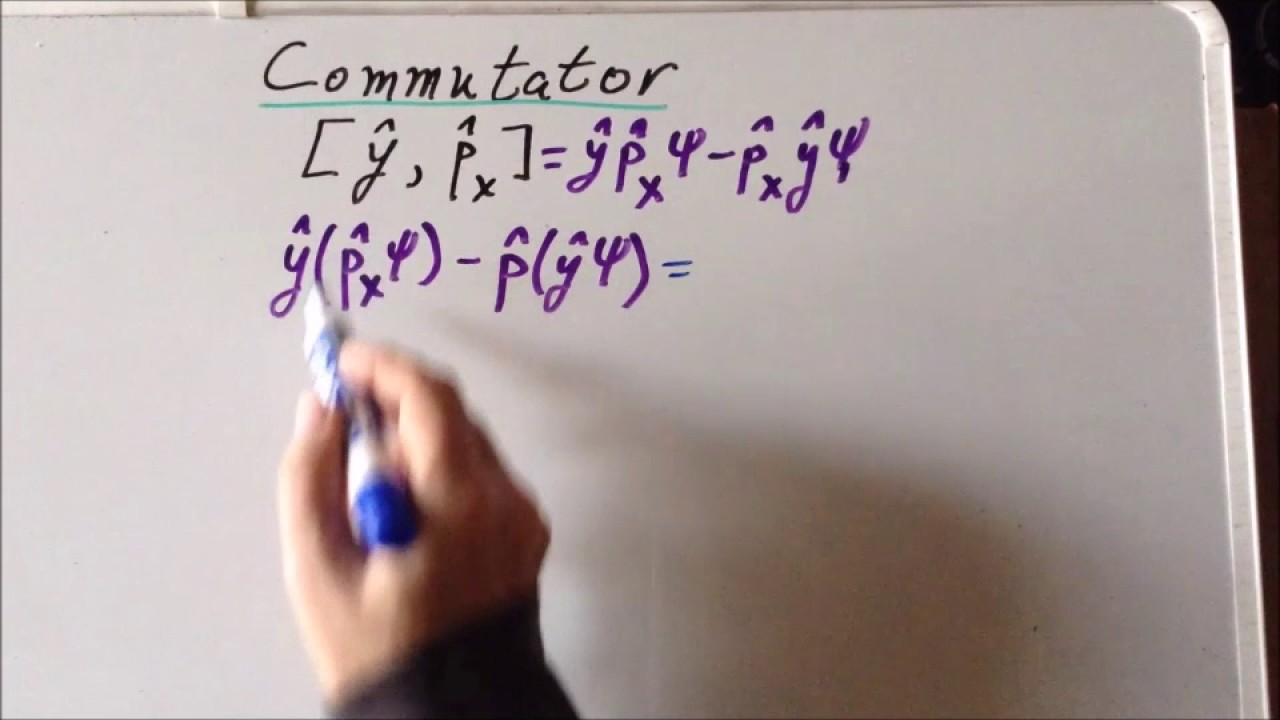 Commutator
[ŷ, p̂ₓ] = ŷp̂ₓψ - p̂ₓŷψ
ŷ(p̂ₓψ) - p̂(ŷψ) =